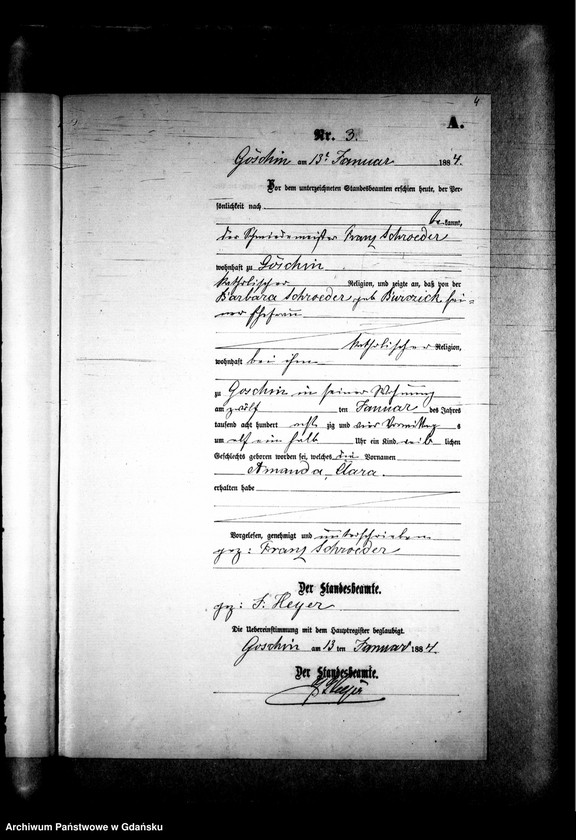 4
A.
Nr. 3.
Göschin am 13t Januar 1884.
Vor dem unterzeichneten Standesbeamten erschien heute, der Per-
sönlichkeit nach
be kannt,
der Schmiedemeister Franz Schroeder
wohnhaft zu Göschin
katholischer Religion, und zeigte an, daß von der
Barbara Schroeder geb Burczick sei=
ner Ehefrau
katholischer Religion,
wohnhaft bei ihm
zu Goschin in seiner Wohnung
am zwölf ten Januar des Jahres
tausend acht hundert acht zig und vier Vormittag s
um elf ein halb Uhr ein Kind weib lichen
Geschlechts geboren worden sei, welches die Vornamen
Amanda, Clara.
erhalten habe
Vorgelesen, genehmigt und unterschrieben
gez: Franz Schroeder
Der Standesbeamte.
gez: F. Heyer
Die Uebereinstimmung mit dem Hauptregister beglaubigt.
Goschin am 13 ten Januar 1884.
Der Standesbeamte.
Heyer
Archiwum Państwowe w Gdańsku